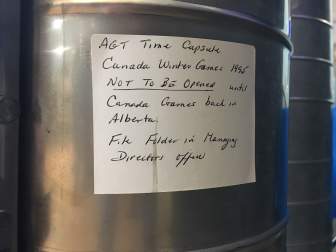 AGT Time Capsule
Canada Winter Games 1995
NOT TO BE OPENED until
Canada Games back in
Alberta.
File Folder in Managing
Directors office